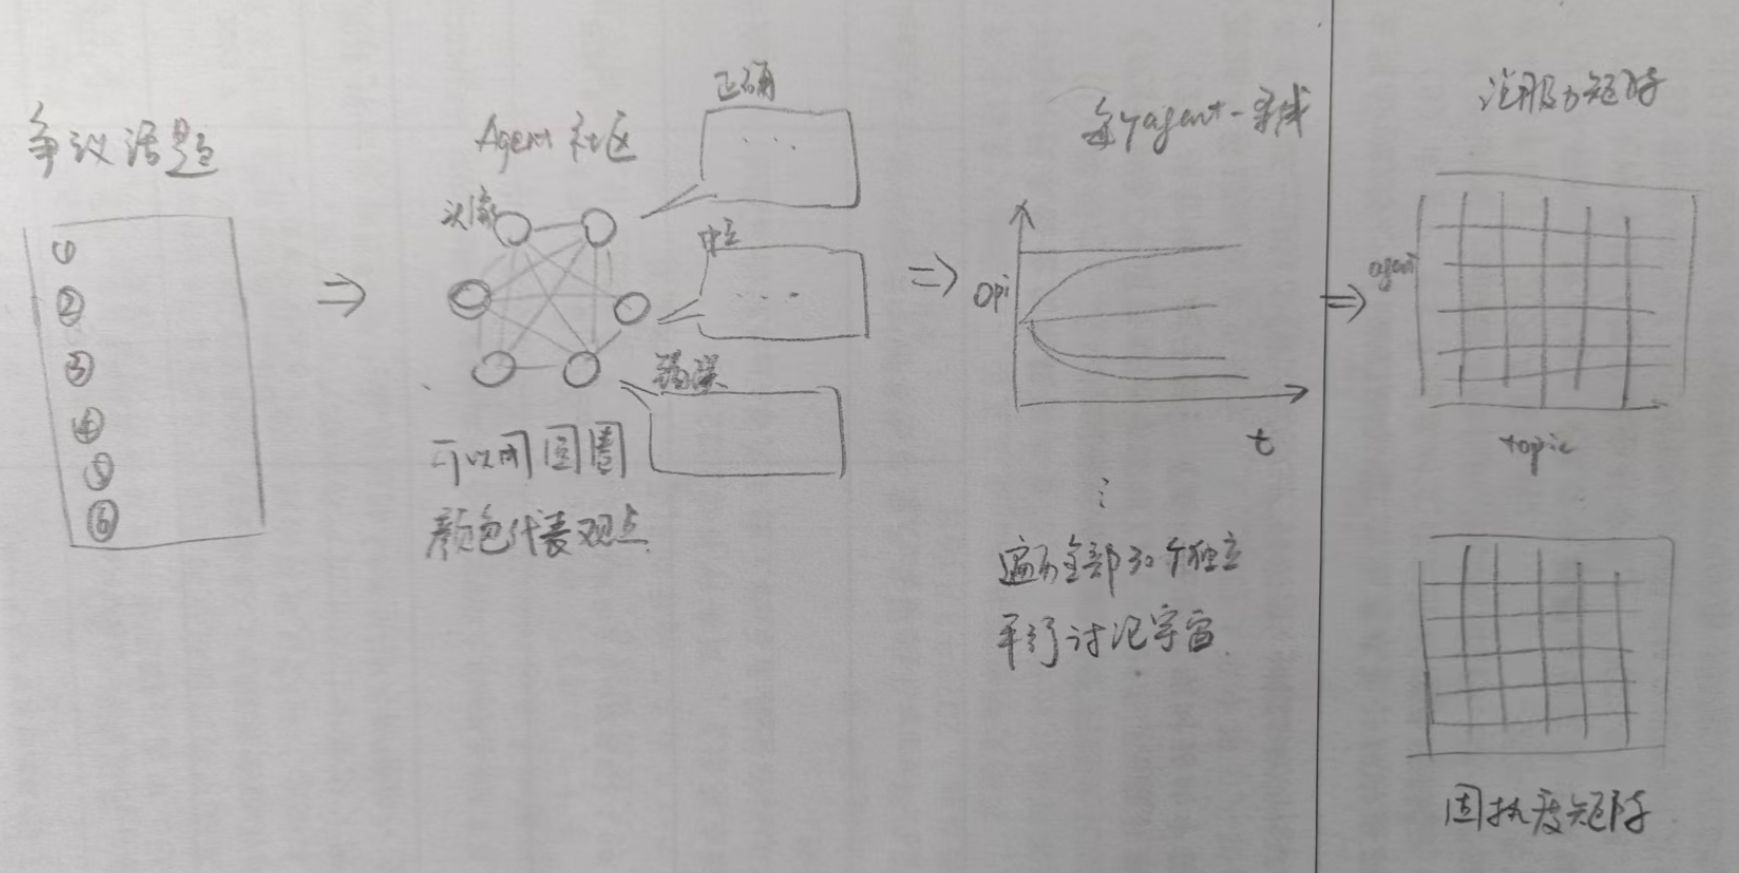 争议话题
①
②
③
④
⑤
⑥
Agent 社区
头像
正确
...
中立
...
错误
可以用圆圈
颜色代表观点
每个agent一条线
opi
t
⋮
遍历全部30个独立
平行讨论宇宙
说服力矩阵
agent
topic
固执度矩阵